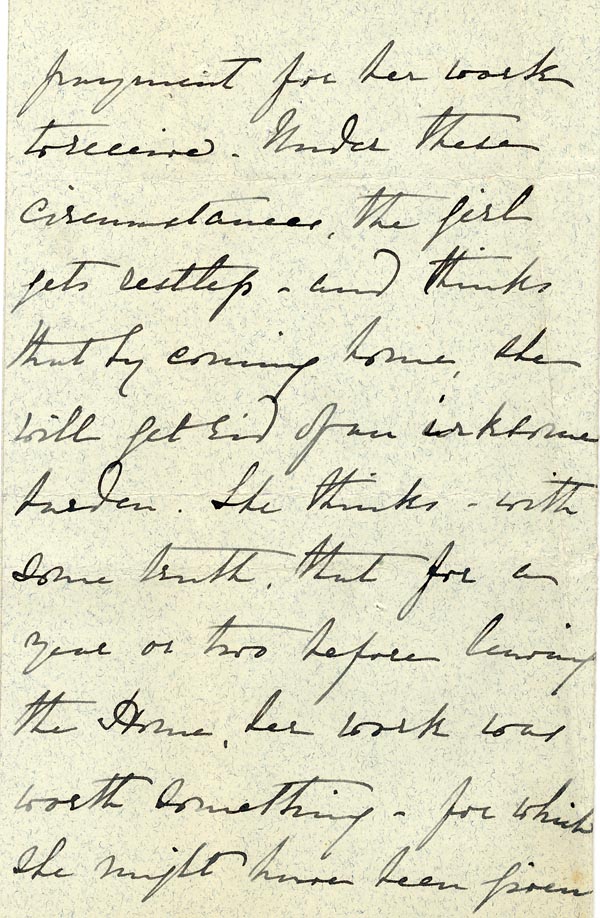 payment for her work
to receive. Under these
circumstances, the girl
gets restless - and thinks
that by coming home, she
will get rid of an irksome
burden. She thinks - with
some truth, that for a
year or two before leaving
the Home, her work was
worth something - for which
she might have been given